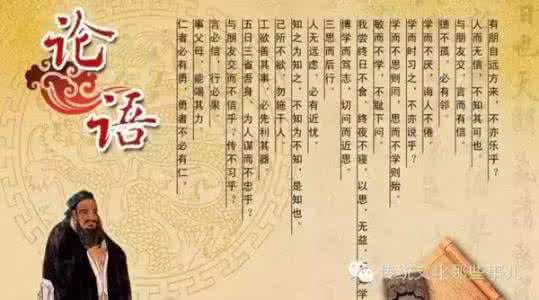 论语
有朋自远方来，不亦乐乎？
人而无信，不知其可也。
与朋友交，言而有信。
德不孤，必有邻。
学而不厌，诲人不倦。
学而时习之，不亦说乎？
学而不思则罔，思而不学则殆。
敏而不学，不耻下问。
我尝终日不食，终夜不寝，以思，无益，
博学而笃志，切问而近思。
三思而后行。
人无远虑，必有近忧。
知之为知之，不知为不知，是知也。
己所不欲，勿施于人。
工欲善其事，必先利其器。
五日三省吾身、为人谋而不忠乎？
与朋友交而不信乎？传不习乎？
言必信，行必果。
事父母，能竭其力
仁者必有勇，勇者不必有仁。
传统文化那些事儿